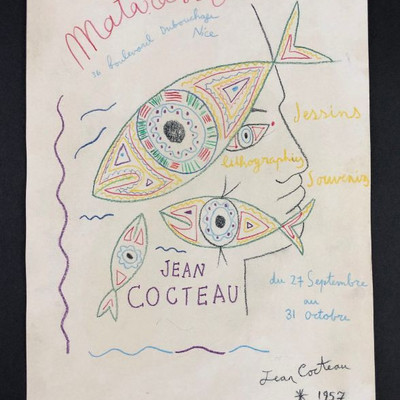 16 boulevard Dubouchage
Nice
dessins
lithographies
Souvenirs
JEAN
COCTEAU
du 27 Septembre
au
31 octobre
Jean Cocteau
* 1957